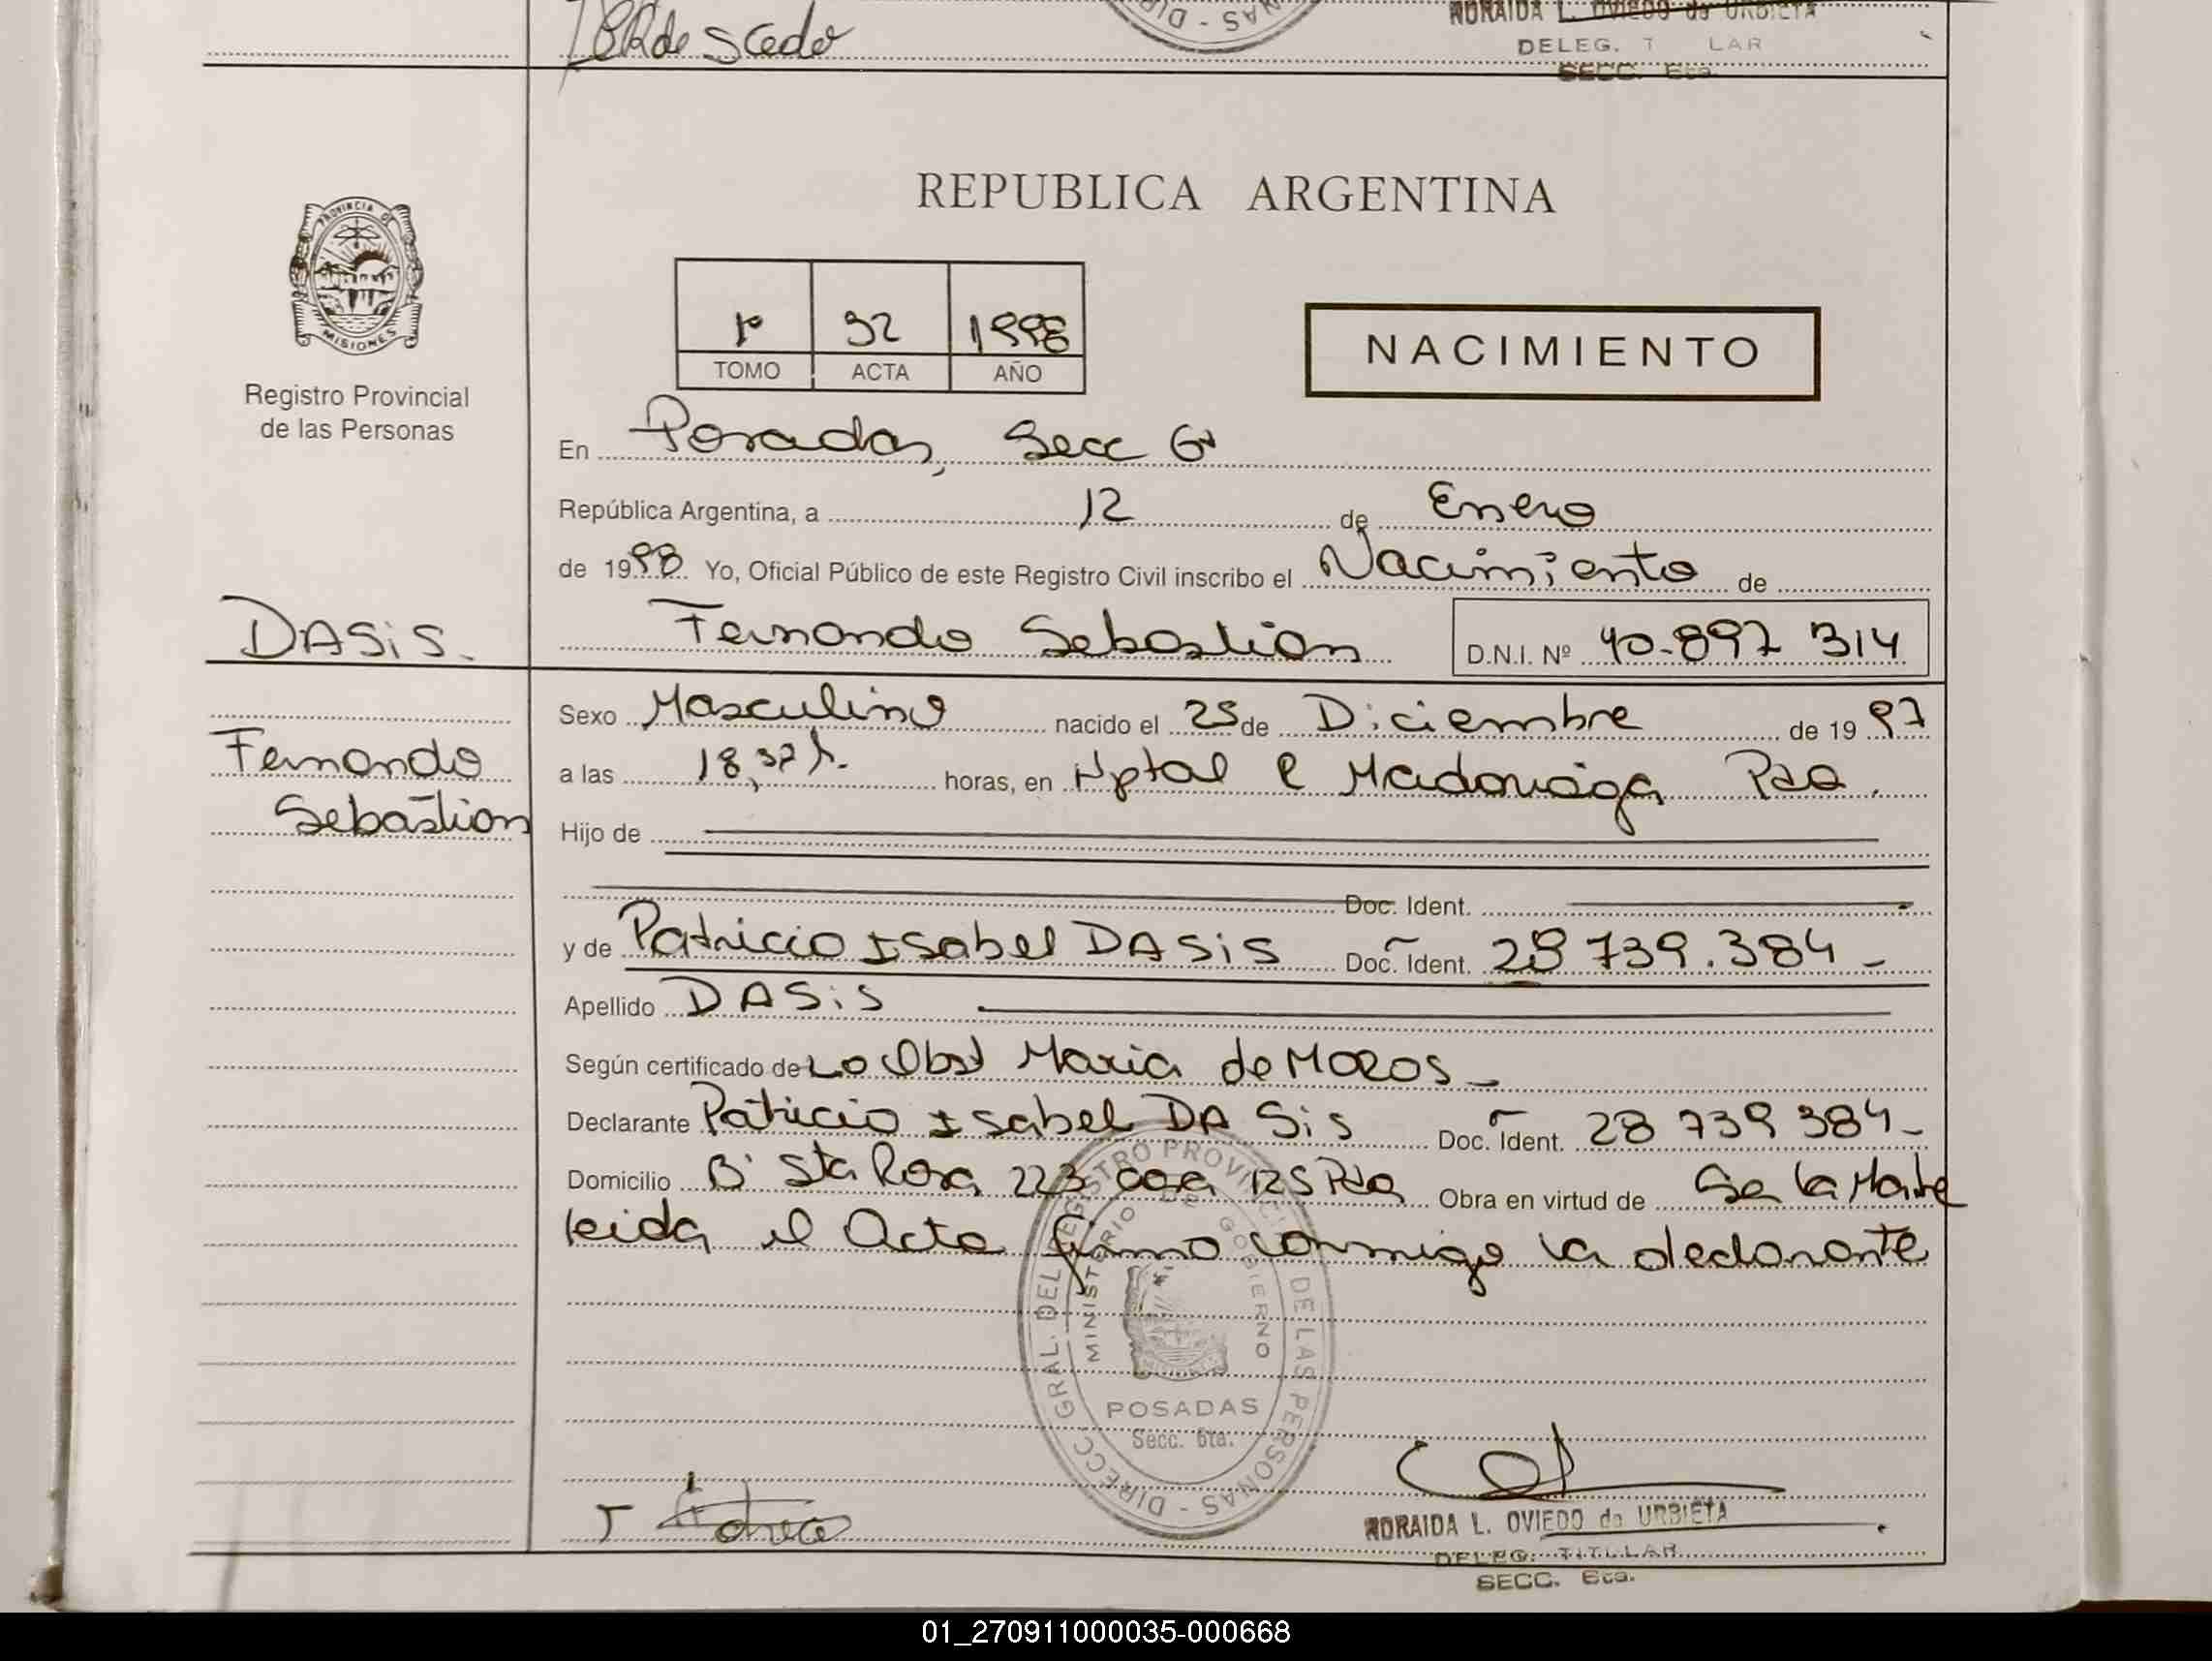 NORAIDA L. OVIEDO de URBIETA
DELEG. T LAR
SECC. 6ta.
PROVINCIA DE
MISIONES
Registro Provincial
de las Personas
REPUBLICA ARGENTINA
1º 92 1998
TOMO ACTA AÑO
NACIMIENTO
En Posadas, Secc 6ª
República Argentina, a 12 de Enero
de 1998 Yo, Oficial Público de este Registro Civil inscribo el Nacimiento de
DASiS. Fernando Sebastian D.N.I. Nº 40.897 314
Sexo Masculino nacido el 25 de Diciembre de 1997
Fernando a las 18,37 h. horas, en Hptal R Madariaga Pda.
Sebastian Hijo de
Doc. Ident.
y de Patricia Isabel DASiS Doc. Ident. 28 739.384
Apellido DASiS
Según certificado de La Obst Maria de MOROS
Declarante Patricia Isabel DASiS Doc. Ident. 28 739 384
Domicilio Bº Sta Rosa 223 casa 125 Pda Obra en virtud de Se la Madre
leida el Acta firma conmigo la declarante
DIRECC. GRAL. DEL REGISTRO PROVINCIAL DE LAS PERSONAS
MINISTERIO DE GOBIERNO
POSADAS
Secc. 6ta.
NORAIDA L. OVIEDO de URBIETA
DELEG. TITULAR
SECC. 6ta.
01_270911000035-000668